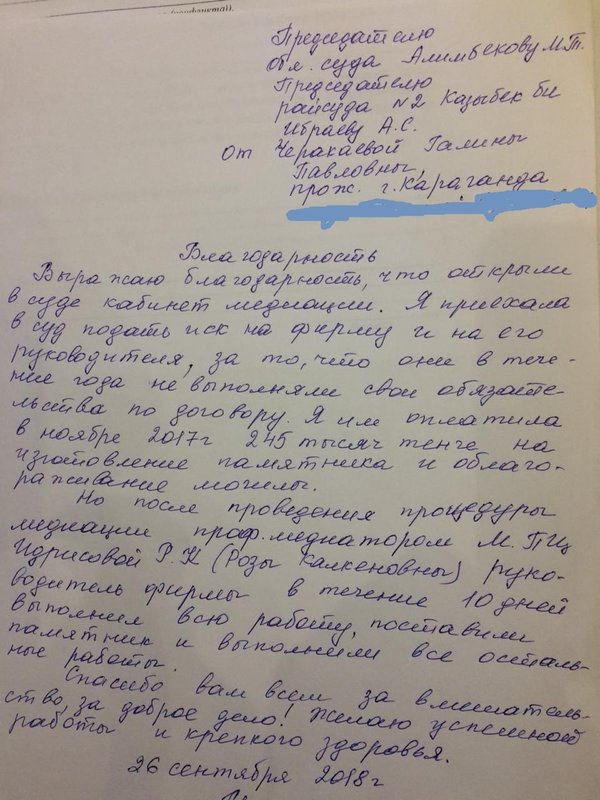 Председателю
обл. суда Алимбекову М.Т.
Председателю
райсуда №2 Казыбек би
Ибраеву А.С.
От Черакаевой Галины
Павловны,
прож. г. Караганда
Благодарность
Выражаю благодарность, что открыли
в суде кабинет медиации. Я приехала
в суд подать иск на фирму и на его
руководителя, за то, что они в тече-
ние года не выполняли свои обязате-
льства по договору. Я им оплатила
в ноябре 2017г 245 тысяч тенге на
изготовление памятника и облаго-
раживание могилы.
Но после проведения процедуры
медиации проф.медиатором М.ПЦ
Идрисовой Р.К (Розы Калкеновны) руко-
водитель фирмы в течение 10 дней
выполнил всю работу, поставили
памятник и выполнили все осталь-
ные работы.
Спасибо вам всем за вмешатель-
ство, за доброе дело! Желаю успешной
работы и крепкого здоровья.
26 сентября 2018г